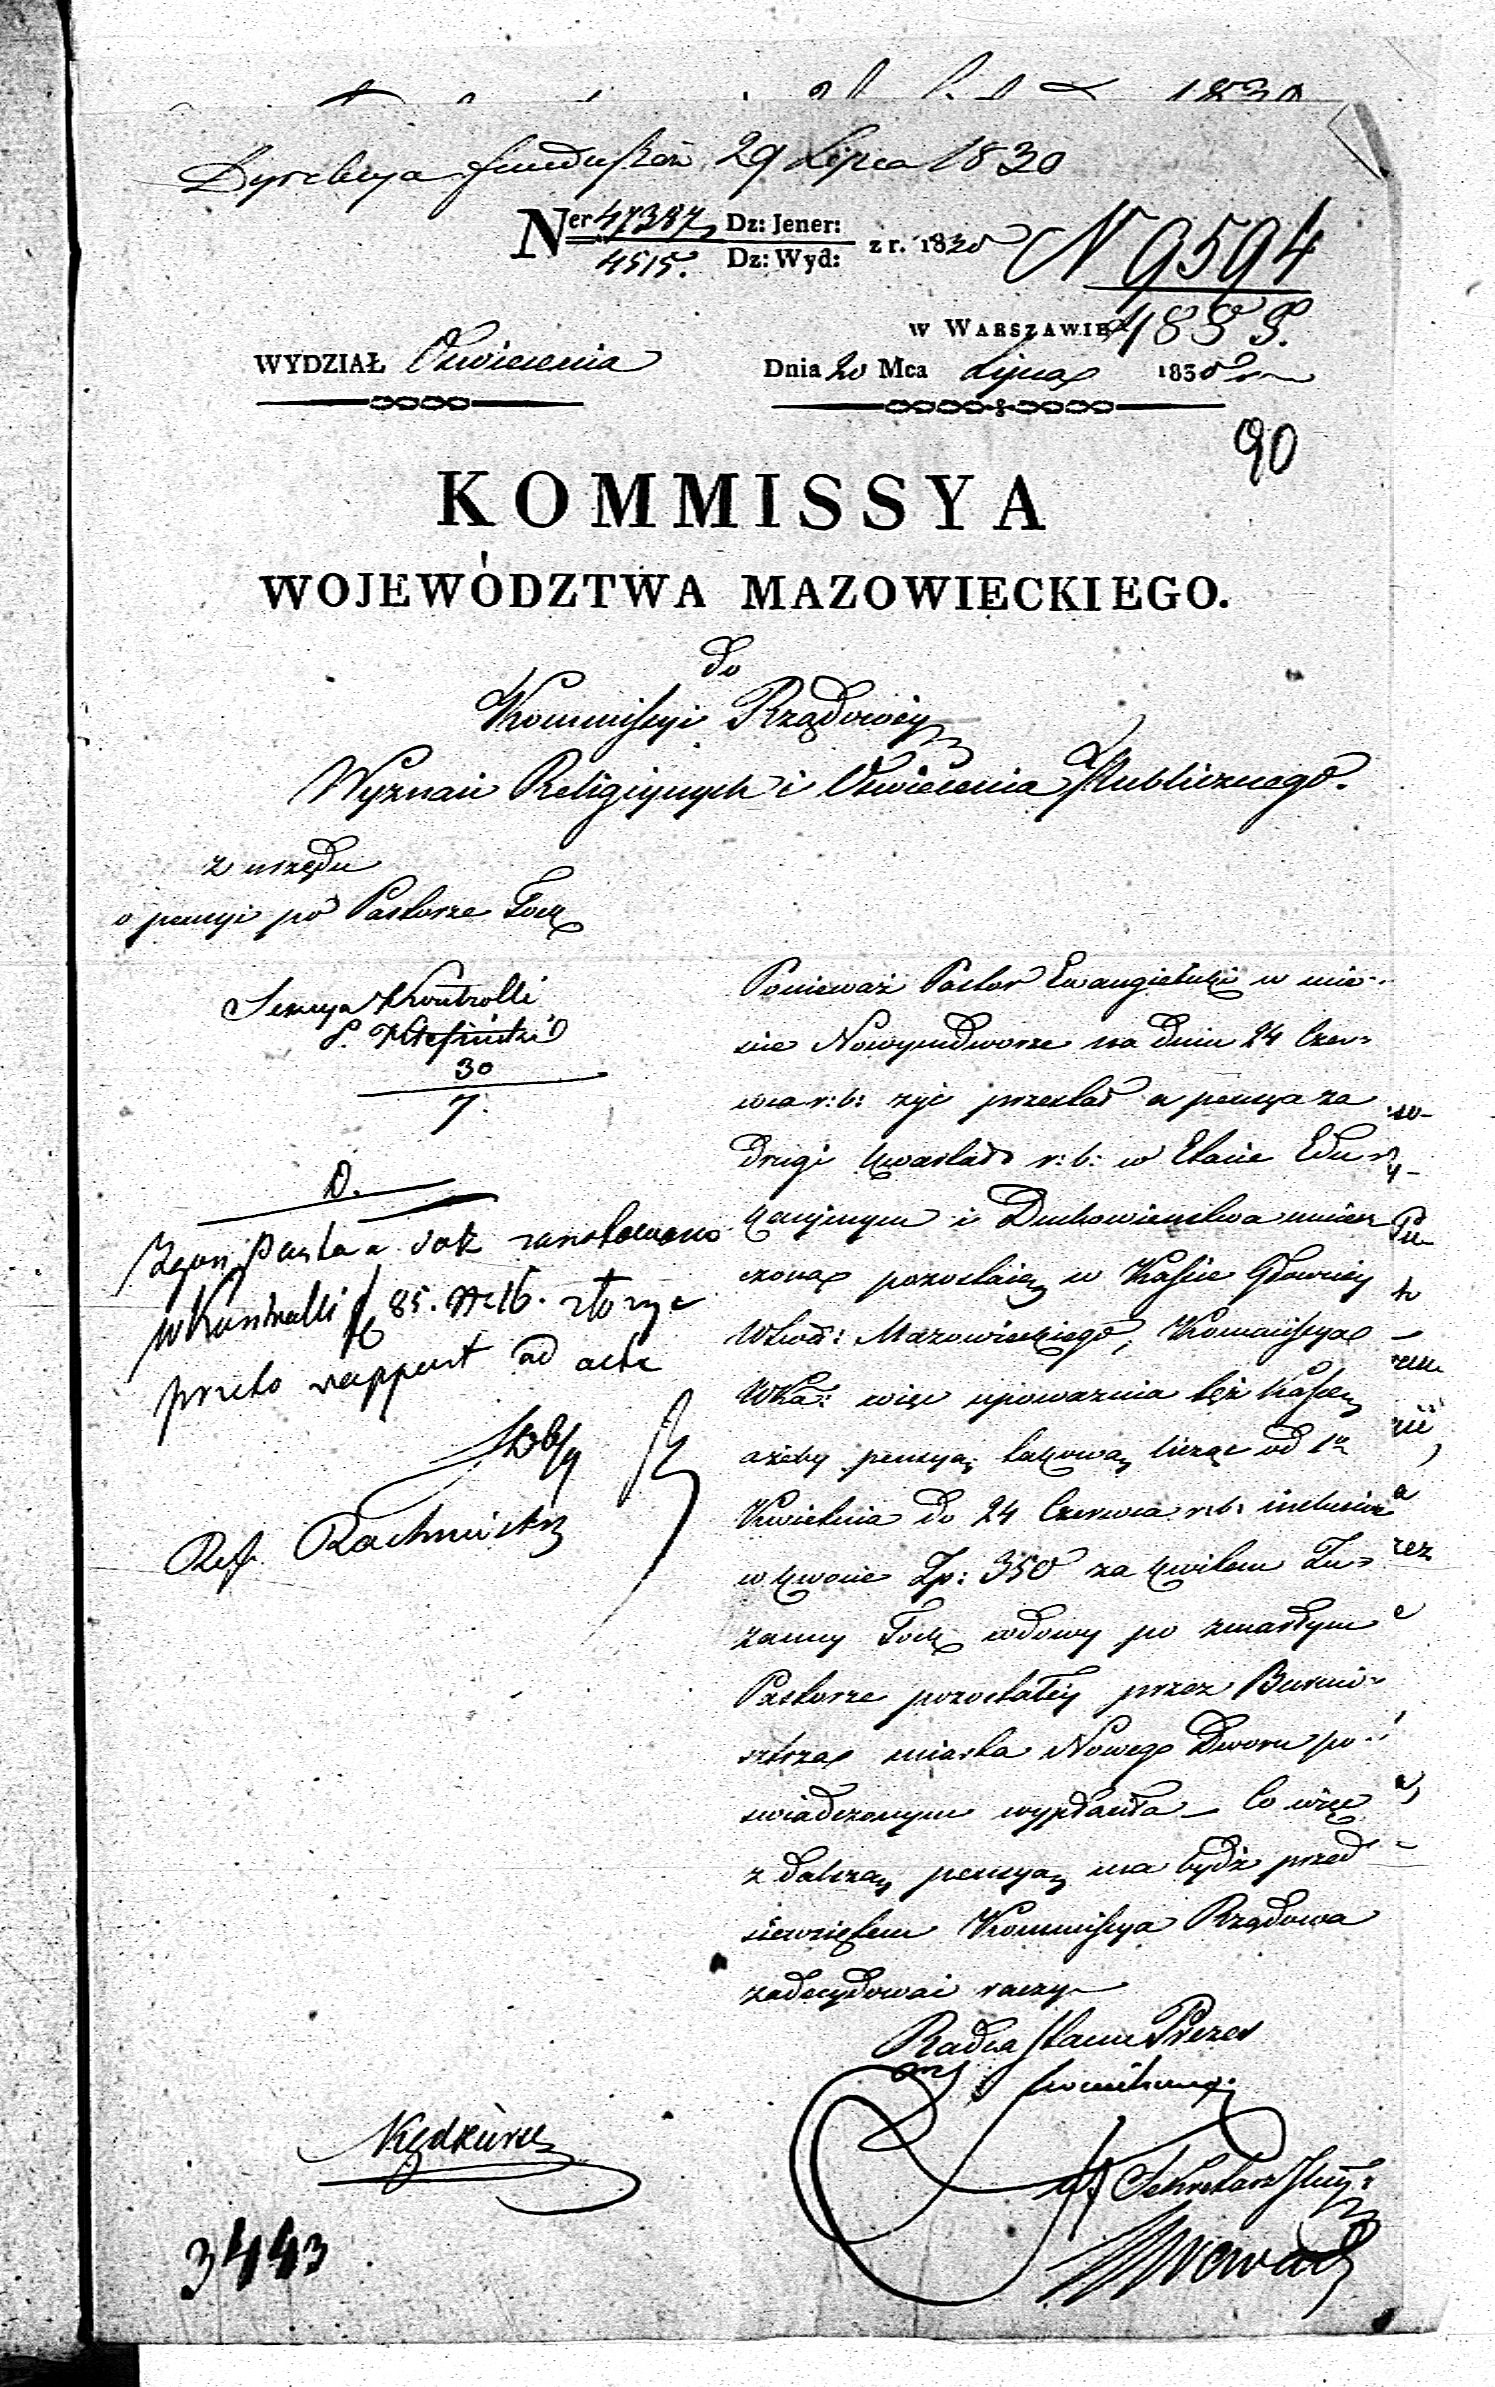 Dyrekcya funduszów 29 Lipca 1830
Ner 47387 Dz: Jener:
4515. Dz: Wyd: z r. 1830
N 9594
4855.
W WARSZAWIE
WYDZIAŁ Oświecenia
Dnia 20 Mca Lipca 1830
90
KOMMISSYA
WOJEWÓDZTWA MAZOWIECKIEGO.
do
Kommissyi Rządowéy
Wyznań Religiynych i Oświecenia Publicznego.
z urzędu
o pensyi po Pastorze Tock
Sekcya Kontrolli
P.
30
7.
D.
Zgon Pastora Tok zanotowano
w Kontrolli f 85. No 16. złożyć
przeto rapport ad acta
Ref. Rachmiński
Ponieważ Pastor Ewangielicki w mie-
ście Nowymdworze na dniu 24 Czer-
wca r: b: żyć przestał a pensya za
drugi kwartał r: b: w Etacie Edu-
kacyjnym i Duchowieństwa umiesz-
czona pozostaie w Kassie Główney
Wtwa: Mazowieckiego, Kommissya
Wtka: więc upoważnia też Kassę
ażeby pensyą takową licząc od 1o
Kwietnia do 24 Czerwca r: b: inclusive
w kwocie Zp: 350 za kwitem Zu-
zanny Tock wdowy po zmarłym
Pastorze pozostałey przez Burmi-
strza miasta Nowego Dworu po-
świadczonym wypłaciła – Co więc
z dalszą pensyą ma bydź przed-
siewziętem Kommissya Rządowa
zadecydować raczy –
Radca Stanu Prezes
Sekretarz Jlny
Nowack
Kędzierski
3443